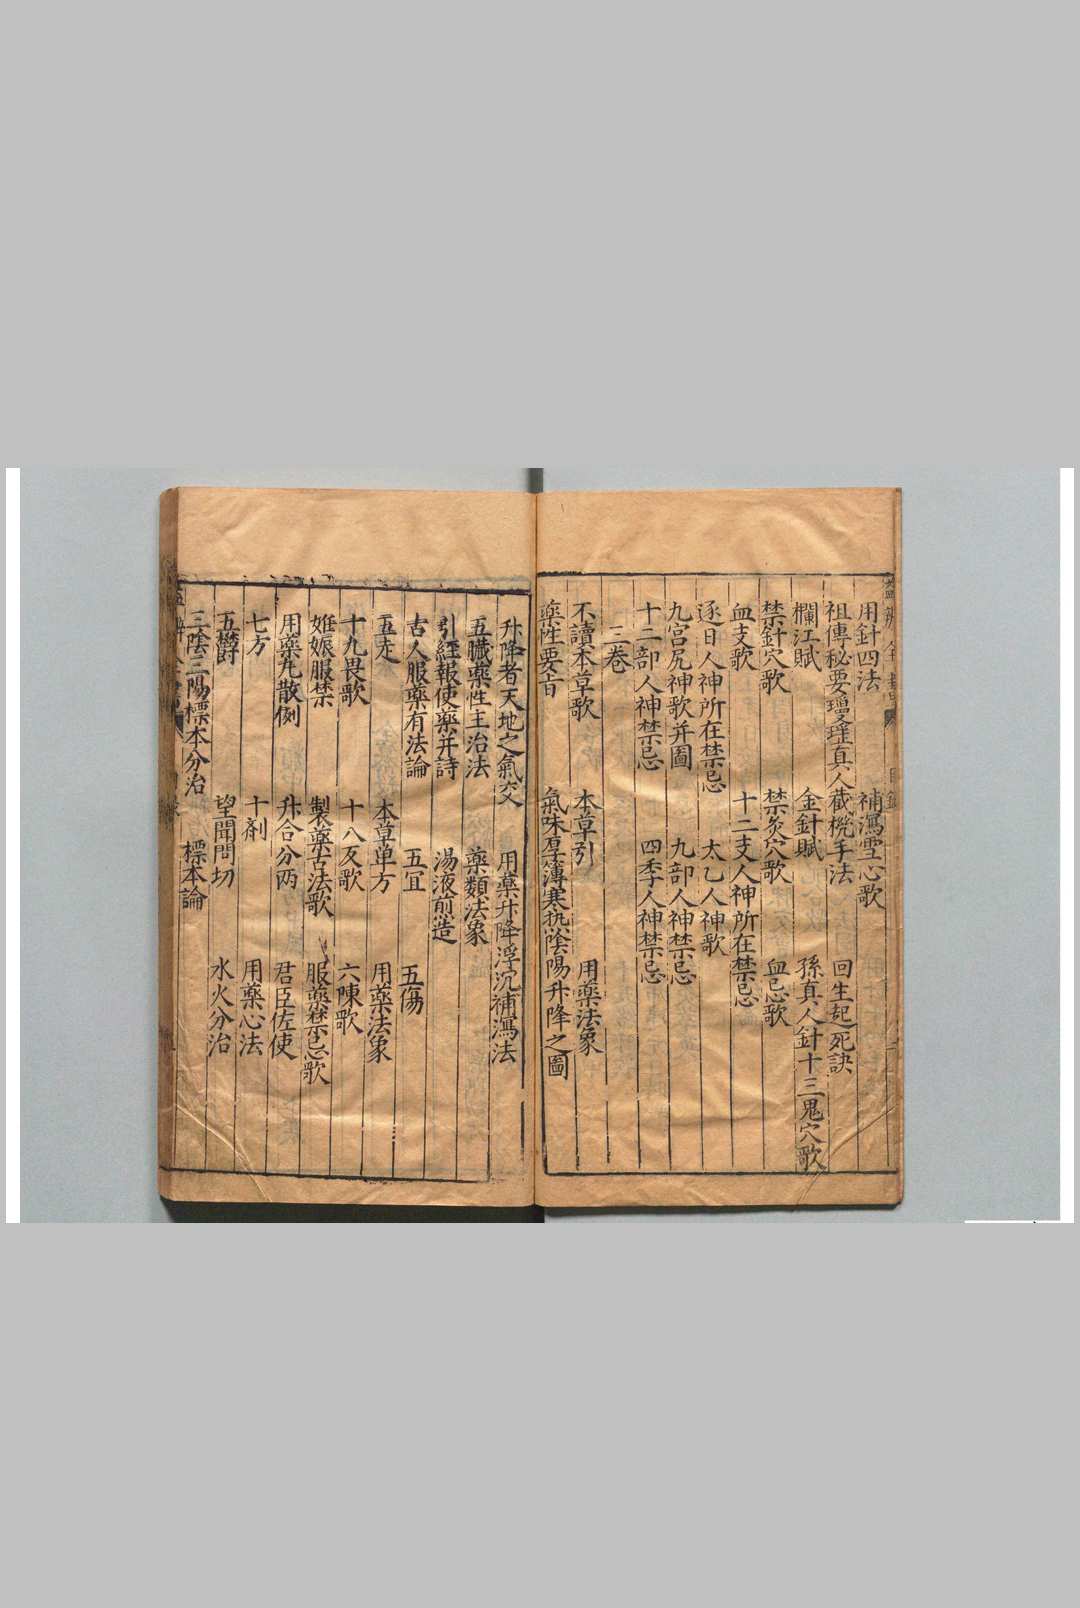 用針四法　補瀉雪心歌
祖傳秘要瓊瑤真人截機手法　回生起死訣
欄江賦　金針賦　孫真人針十三鬼穴歌
禁針穴歌　禁灸穴歌　血忌歌
血支歌　十二支人神所在禁忌
逐日人神所在禁忌　太乙人神歌
九宮尻神歌并圖　九部人神禁忌
十二部人神禁忌　四季人神禁忌
三卷
不讀本草歌　本草引　用藥法象
藥性要旨　氣味厚薄寒熱陰陽升降之圖
升降者天地之氣交　用藥升降浮沉補瀉法
五臟藥性主治法　藥類法象
引經報使藥并詩　湯液煎造
古人服藥有法論　五宜　五傷
五走　本草单方　用藥法象
十九畏歌　十八反歌　六陳歌
姙娠服禁　製藥古法歌　服藥禁忌歌
用藥丸散例　升合分两　君臣佐使
七方　十劑　用藥心法
五欝　望聞問切　水火分治
三陰三陽標本分治　標本論